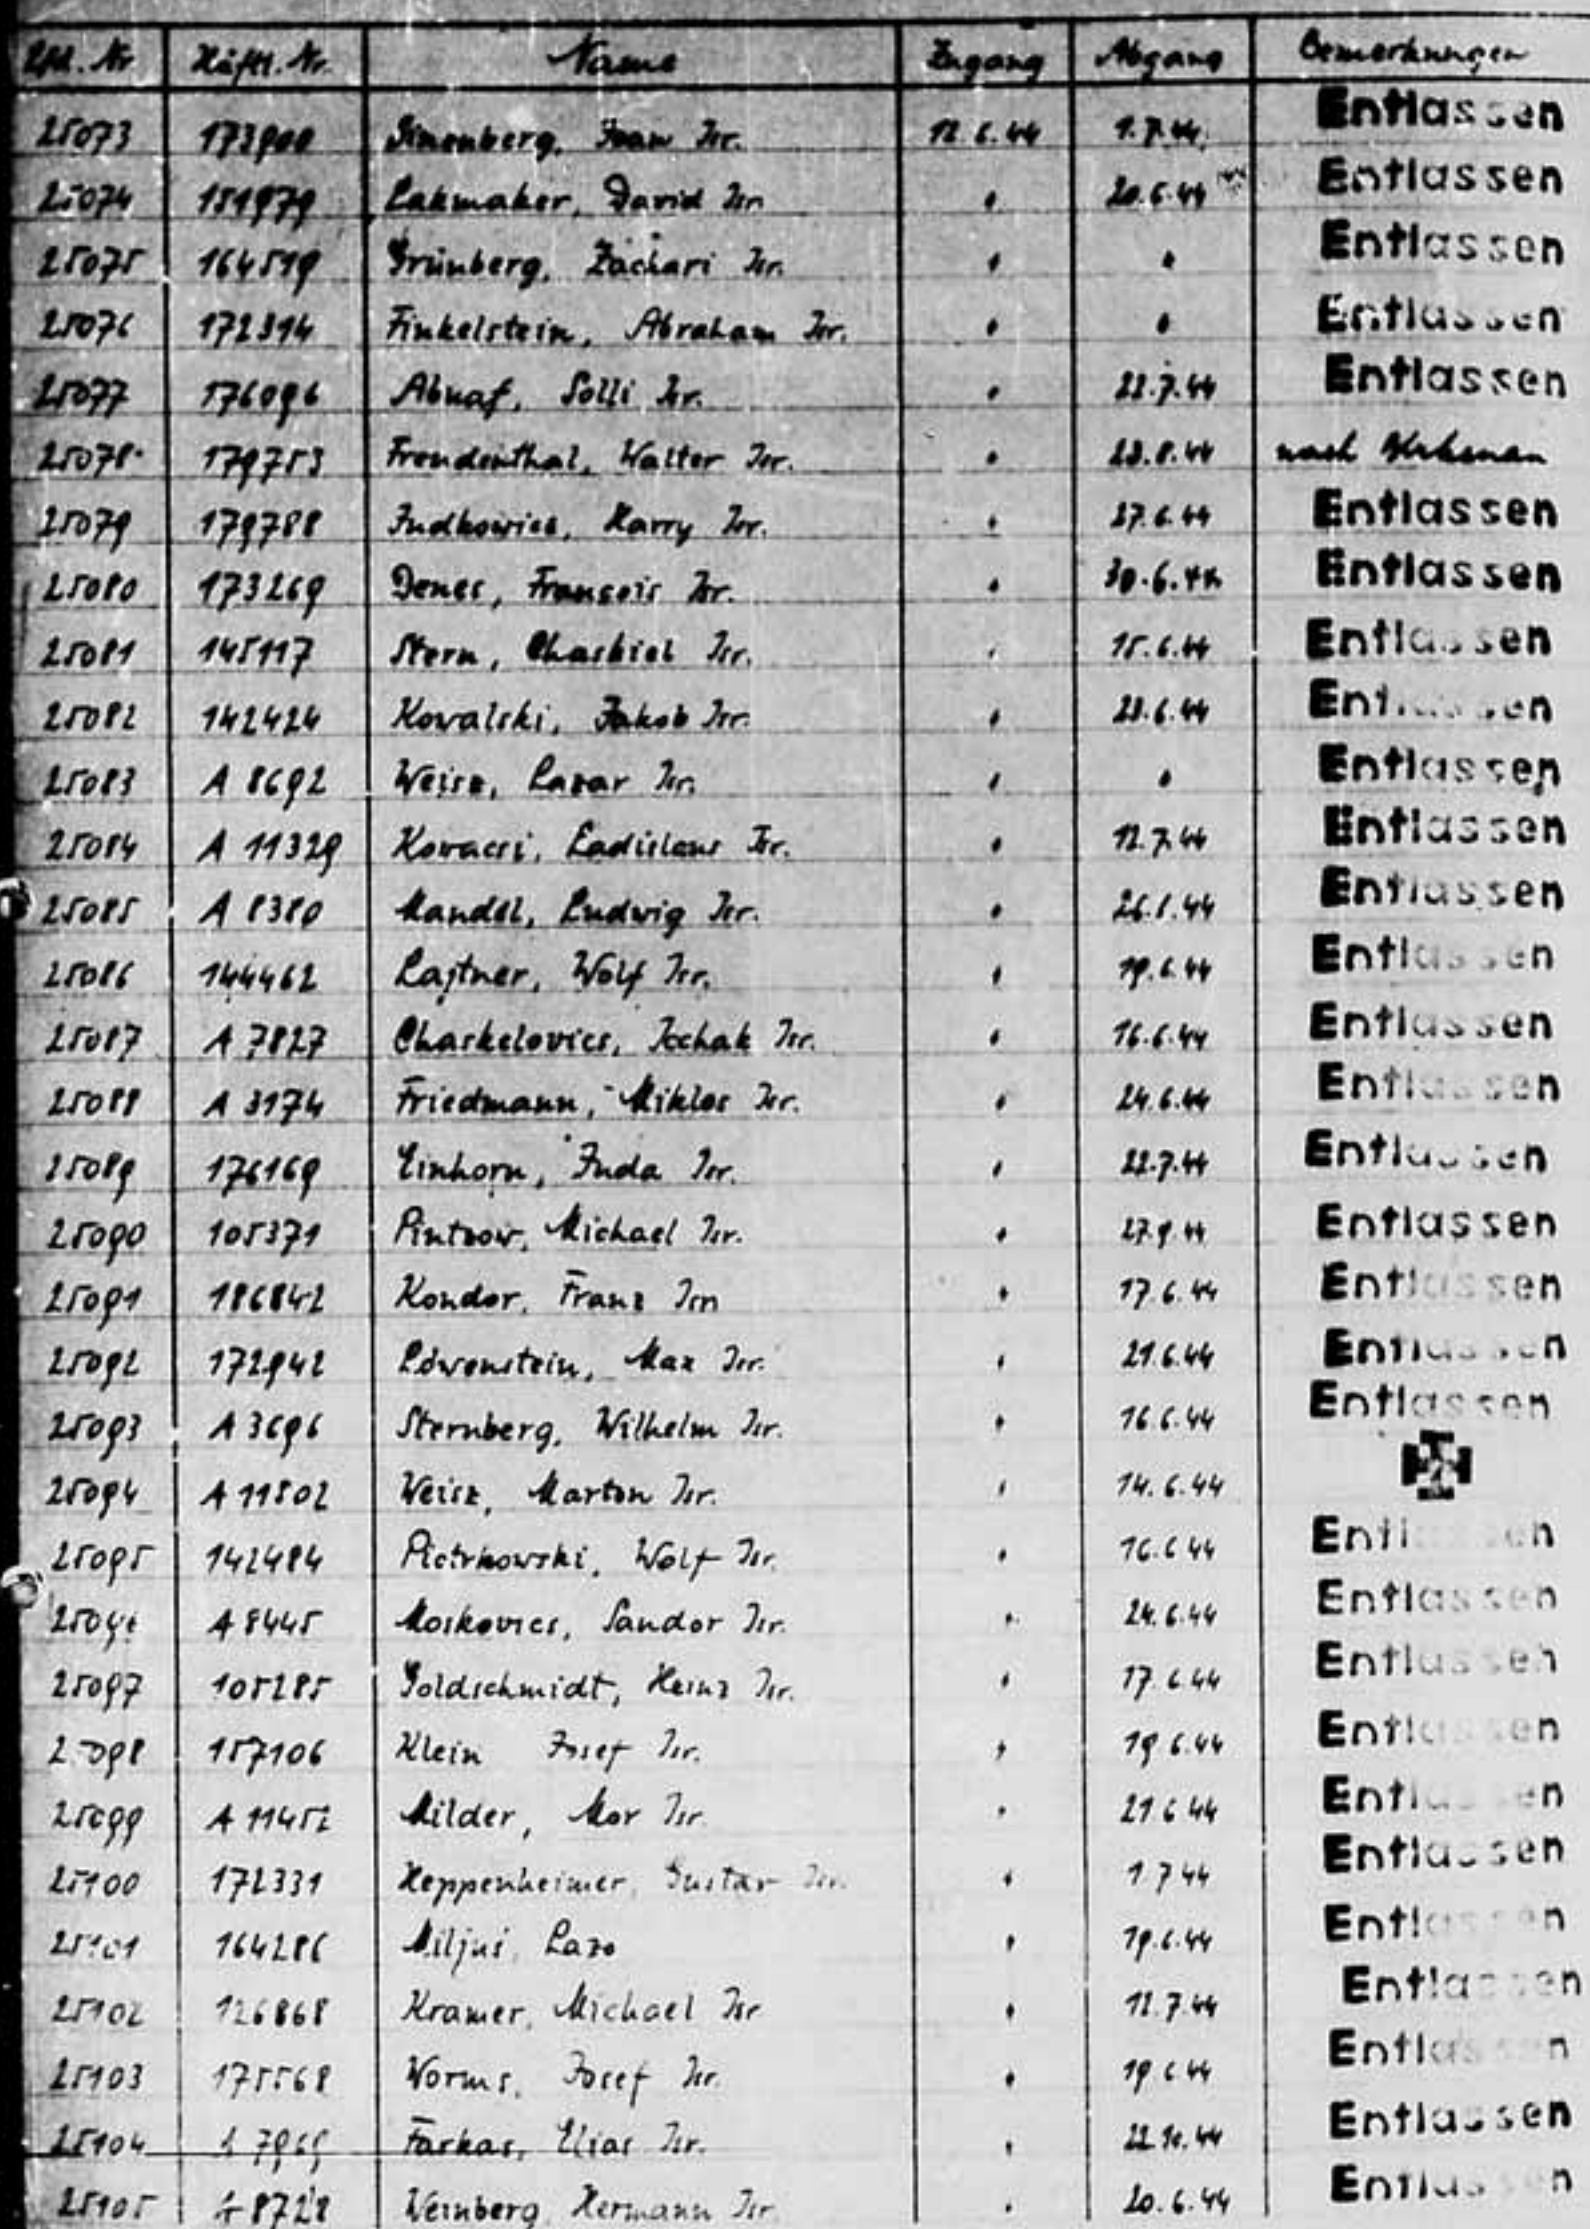 Lfd. Nr. Häftl. Nr. Name Zugang Abgang Bemerkungen
25073 173900 Isr. 12.6.44 1.7.44 Entlassen
25074 151979 Lakmaker, David Isr. " 20.6.44 Entlassen
25075 164519 Grünberg, Zachari Isr. " " Entlassen
25076 172314 Finkelstein, Abraham Isr. " " Entlassen
25077 176096 Abuaf, Solli Isr. " 22.7.44 Entlassen
25078 179753 Freudenthal, Walter Isr. " 23.8.44 nach Birkenau
25079 179788 Judkowicz, Harry Isr. " 27.6.44 Entlassen
25080 173269 Denes, François Isr. " 30.6.44 Entlassen
25081 145117 Stern, Chaskiel Isr. " 15.6.44 Entlassen
25082 142424 Kowalski, Jakob Isr. " 23.6.44 Entlassen
25083 A 8692 Weisz, Lazar Isr. " " Entlassen
25084 A 11329 Kovacsi, Ladislaus Isr. " 12.7.44 Entlassen
25085 A 8380 Mandel, Ludwig Isr. " 26.8.44 Entlassen
25086 144462 Lajtner, Wolf Isr. " 19.6.44 Entlassen
25087 A 7827 Chaskelovics, Isr. " 16.6.44 Entlassen
25088 A 3174 Friedmann, Miklos Isr. " 24.6.44 Entlassen
25089 176169 Einhorn, Juda Isr. " 22.7.44 Entlassen
25090 105371 Michael Isr. " 27.9.44 Entlassen
25091 186842 Kondor, Franz Isr. " 17.6.44 Entlassen
25092 172942 Löwenstein, Max Isr. " 21.6.44 Entlassen
25093 A 3696 Sternberg, Wilhelm Isr. " 16.6.44 Entlassen
25094 A 11502 Weisz, Marton Isr. " 14.6.44
25095 142484 Piotrkowski, Wolf Isr. " 16.6.44 Entlassen
25096 A 8445 Moskovics, Sandor Isr. " 24.6.44 Entlassen
25097 105285 Goldschmidt, Heinz Isr. " 17.6.44 Entlassen
25098 157106 Klein Josef Isr. " 19.6.44 Entlassen
25099 A 11452 Milder, Mor Isr. " 21.6.44 Entlassen
25100 172331 Heppenheimer, Gustav Isr. " 1.7.44 Entlassen
25101 164286 Lazo " 19.6.44 Entlassen
25102 126868 Kramer, Michael Isr. " 12.7.44 Entlassen
25103 175568 Worms, Josef Isr. " 19.6.44 Entlassen
25104 Farkas, Elias Isr. " 22.10.44 Entlassen
25105 A 8728 Weinberg, Hermann Isr. " 20.6.44 Entlassen